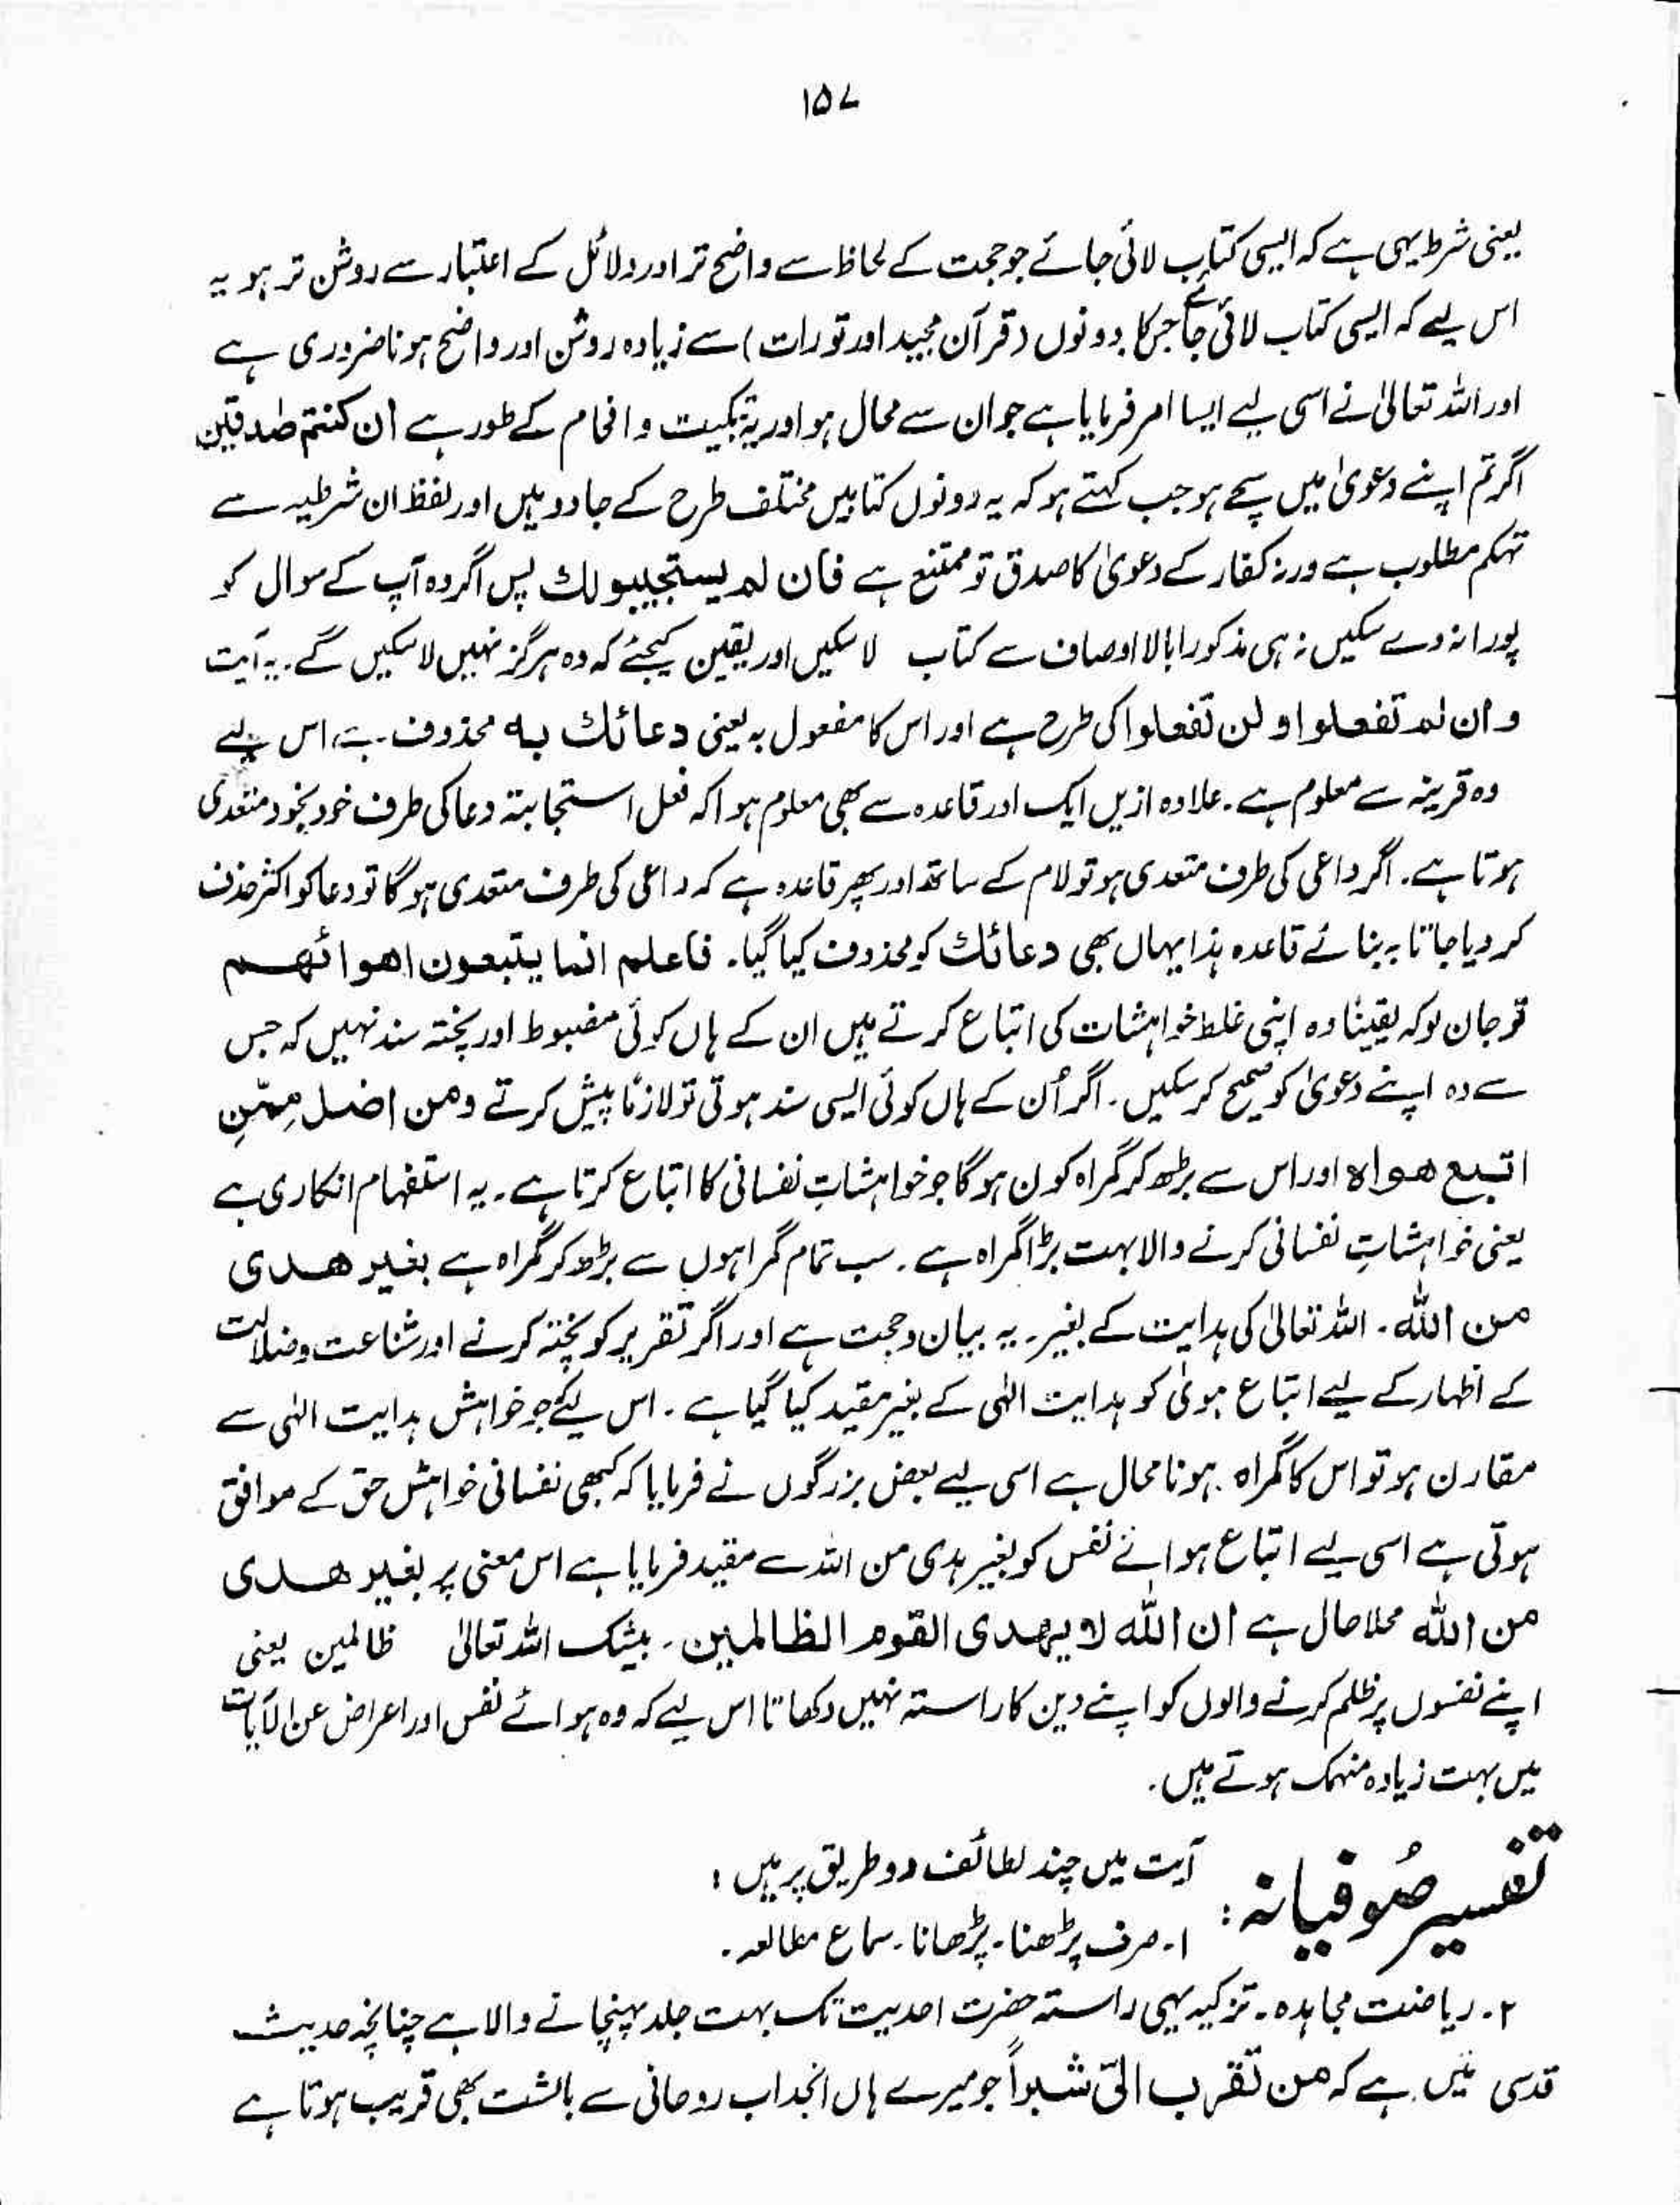 ۱۵۷
یعنی شرط یہی ہے کہ ایسی کتاب لائی جائے جو حجت کے لحاظ سے واضح تر اور دلائل کے اعتبار سے روشن تر ہو یہ
اس لیے کہ ایسی کتاب لائی جائے جس کا دونوں (قرآن مجید اور تورات) سے زیادہ روشن اور واضح ہونا ضروری ہے
اور اللہ تعالیٰ نے اسی لیے ایسا امر فرمایا ہے جو ان سے محال ہو اور یہ تبکیت و افحام کے طور ہے ان کنتم صٰدقین
اگر تم اپنے دعویٰ میں سچے ہو جب کہتے ہو کہ یہ دونوں کتابیں مختلف طرح کے جادو ہیں اور لفظ ان شرطیہ سے
تہکم مطلوب ہے ورنہ کفار کے دعویٰ کا صدق تو ممتنع ہے فان لم یستجیبو لك پس اگر وہ آپ کے سوال کو
پورا نہ دے سکیں نہ ہی مذکورا بالا اوصاف سے کتاب لا سکیں اور یقین کیجئے کہ وہ ہرگز نہیں لا سکیں گے۔ یہ آیت
و ان لم تفعلوا و لن تفعلوا کی طرح ہے اور اس کا مفعول بہ یعنی دعائك بہ محذوف ہے اس لیے
وہ قرینہ سے معلوم ہے۔ علاوہ ازیں ایک اور قاعدہ سے بھی معلوم ہوا کہ فعل استجابتہ دعا کی طرف خود بخود متعدی
ہوتا ہے۔ اگر داعی کی طرف متعدی ہو تو لام کے ساتھ اور پھر قاعدہ ہے کہ داعی کی طرف متعدی ہو گا تو دعا کو اکثر حذف
کر دیا جاتا بہ بنائے قاعدہ ہذا یہاں بھی دعائك کو محذوف کیا گیا۔ فاعلم انما یتبعون اھوائھم
تو جان لو کہ یقینًا وہ اپنی غلط خواہشات کی اتباع کرتے ہیں ان کے ہاں کوئی مضبوط اور پختہ سند نہیں کہ جس
سے وہ اپنے دعویٰ کو صحیح کر سکیں۔ اگر اُن کے ہاں کوئی ایسی سند ہوتی تو لازمًا پیش کرتے ومن اضل مِمّنِ
اتبع ھواہ اور اس سے بڑھ کر گمراہ کون ہو گا جو خواہشاتِ نفسانی کا اتباع کرتا ہے۔ یہ استفہام انکاری ہے
یعنی خواہشاتِ نفسانی کرنے والا بہت بڑا گمراہ ہے۔ سب تمام گمراہوں سے بڑھ کر گمراہ ہے بغیر ھدی
من اللہ۔ اللہ تعالیٰ کی ہدایت کے بغیر۔ یہ بیان و حجت ہے اور اگر تقریر کو پختہ کرنے اور شناعت و ضلالت
کے اظہار کے لیے اتباع ہویٰ کو ہدایت الٰہی کے بغیر مقید کیا گیا ہے۔ اس لیے جو خواہش ہدایت الٰہی سے
مقارن ہو تو اس کا گمراہ ہونا محال ہے اسی لیے بعض بزرگوں نے فرمایا کہ کبھی نفسانی خواہش حق کے موافق
ہوتی ہے اسی لیے اتباع ہوائے نفس کو بغیر ہدی من اللہ سے مقید فرمایا ہے اس معنی پر بغیر ھدی
من اللہ محلا حال ہے ان اللہ لا یھدی القوم الظالمین۔ بیشک اللہ تعالیٰ ظالمین یعنی
اپنے نفسوں پر ظلم کرنے والوں کو اپنے دین کا راستہ نہیں دکھاتا اس لیے کہ وہ ہوائے نفس اور اعراض عن الآیات
میں بہت زیادہ منہمک ہوتے ہیں۔
تفسیر صُوفیانہ: آیت میں چند لطائف دو طریق پر ہیں:
۱۔ صرف پڑھنا۔ پڑھانا۔ سماع مطالعہ۔
۲۔ ریاضت مجاہدہ۔ تزکیہ یہی راستہ حضرت احدیت تک بہت جلد پہنچانے والا ہے چنانچہ حدیث
قدسی میں ہے کہ من تقرب الیّ شبراً جو میرے ہاں انجذاب روحانی سے بالشت بھی قریب ہوتا ہے